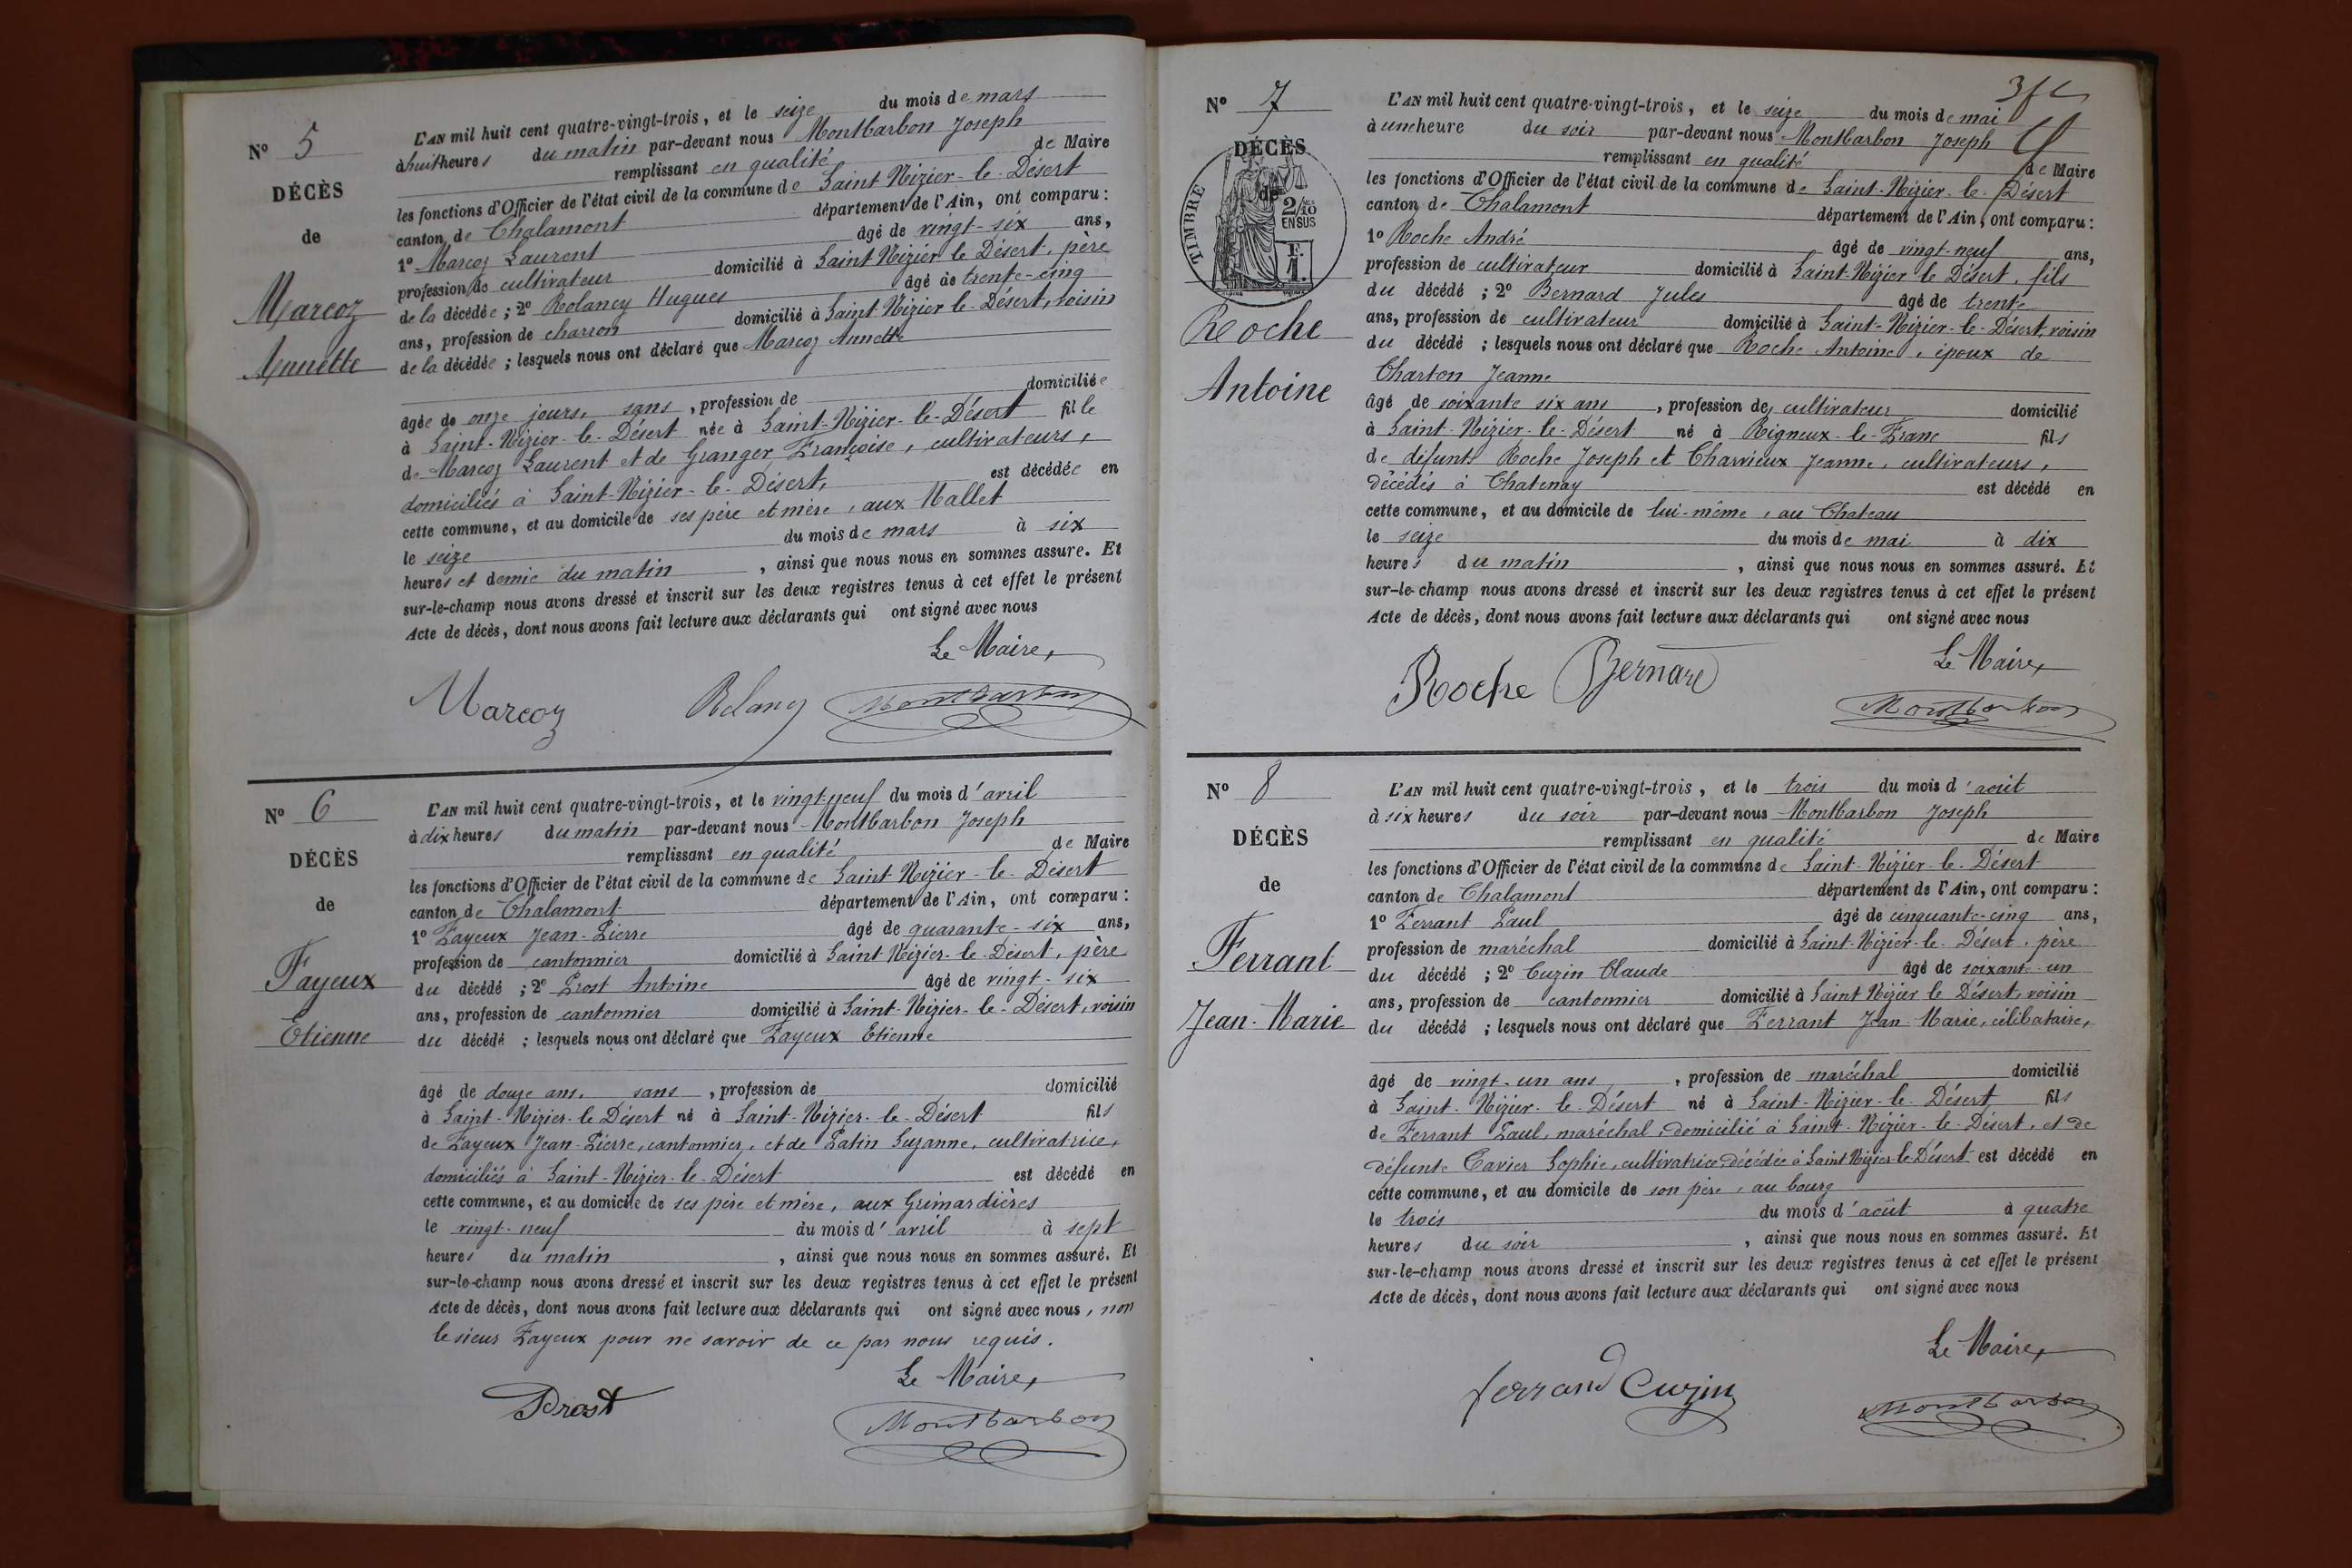 N° 5
DÉCÈS
de
Marcoz
Annette
L'AN mil huit cent quatre-vingt-trois, et le seize du mois de mars
à huit heures du matin par-devant nous Montbarbon Joseph
remplissant en qualité de Maire
les fonctions d'Officier de l'état civil de la commune de Saint Nizier-le-Désert
canton de Chalamont département de l'Ain, ont comparu :
1° Marcoz Laurent âgé de vingt-six ans,
profession de cultivateur domicilié à Saint Nizier le Désert, père
de la décédée ; 2° Rolancy Hugues âgé de trente-cinq
ans, profession de charron domicilié à Saint-Nizier-le-Désert, voisin
de la décédée ; lesquels nous ont déclaré que Marcoz Annette
âgée de onze jours, sans , profession de domiciliée
à Saint-Nizier-le-Désert née à Saint-Nizier-le-Désert fille
de Marcoz Laurent et de Granger Françoise, cultivateurs,
domiciliés à Saint-Nizier-le-Désert, est décédée en
cette commune, et au domicile de ses père et mère, aux Mallet
le seize du mois de mars à six
heures et demie du matin , ainsi que nous nous en sommes assuré. Et
sur-le-champ nous avons dressé et inscrit sur les deux registres tenus à cet effet le présent
Acte de décès, dont nous avons fait lecture aux déclarants qui ont signé avec nous
Le Maire,
Marcoz Rolancy Montbarbon
N° 6
DÉCÈS
de
Fayeux
Etienne
L'AN mil huit cent quatre-vingt-trois, et le vingt-neuf du mois d'avril
à dix heures du matin par-devant nous Montbarbon Joseph
remplissant en qualité de Maire
les fonctions d'Officier de l'état civil de la commune de Saint Nizier-le-Désert
canton de Chalamont département de l'Ain, ont comparu :
1° Fayeux Jean-Pierre âgé de quarante-six ans,
profession de cantonnier domicilié à Saint Nizier-le-Désert, père
du décédé ; 2° Prost Antoine âgé de vingt-six
ans, profession de cantonnier domicilié à Saint-Nizier-le-Désert, voisin
du décédé ; lesquels nous ont déclaré que Fayeux Etienne
âgé de douze ans, sans , profession de domicilié
à Saint-Nizier-le Désert né à Saint-Nizier-le-Désert fils
de Fayeux Jean-Pierre, cantonnier, et de Patin Suzanne, cultivatrice,
domiciliés à Saint-Nizier-le-Désert est décédé en
cette commune, et au domicile de ses père et mère, aux Grimardières
le vingt-neuf du mois d'avril à sept
heures du matin , ainsi que nous nous en sommes assuré. Et
sur-le-champ nous avons dressé et inscrit sur les deux registres tenus à cet effet le présent
Acte de décès, dont nous avons fait lecture aux déclarants qui ont signé avec nous, non
le sieur Fayeux pour ne savoir de ce par nous requis.
Le Maire,
Prost Montbarbon
N° 7
DÉCÈS
de
TIMBRE
2/10
EN SUS
F.
1.
Roche
Antoine
L'AN mil huit cent quatre-vingt-trois, et le seize du mois de mai
à une heure du soir par-devant nous Montbarbon Joseph
remplissant en qualité de Maire
les fonctions d'Officier de l'état civil de la commune de Saint-Nizier-le-Désert
canton de Chalamont département de l'Ain, ont comparu :
1° Roche André âgé de vingt-neuf ans,
profession de cultivateur domicilié à Saint-Nizier le Désert, fils
du décédé ; 2° Bernard Jules âgé de trente
ans, profession de cultivateur domicilié à Saint-Nizier-le-Désert, voisin
du décédé ; lesquels nous ont déclaré que Roche Antoine, époux de
Charton Jeanne
âgé de soixante six ans , profession de cultivateur domicilié
à Saint-Nizier-le-Désert né à Rigneux-le-Franc fils
de défunts Roche Joseph et Charvieux Jeanne, cultivateurs,
décédés à Chatenay est décédé en
cette commune, et au domicile de lui-même, au Chateau
le seize du mois de mai à dix
heures du matin , ainsi que nous nous en sommes assuré. Et
sur-le-champ nous avons dressé et inscrit sur les deux registres tenus à cet effet le présent
Acte de décès, dont nous avons fait lecture aux déclarants qui ont signé avec nous
Le Maire,
Roche Bernard Montbarbon
N° 8
DÉCÈS
de
Ferrant
Jean-Marie
L'AN mil huit cent quatre-vingt-trois, et le trois du mois d'août
à six heures du soir par-devant nous Montbarbon Joseph
remplissant en qualité de Maire
les fonctions d'Officier de l'état civil de la commune de Saint-Nizier-le-Désert
canton de Chalamont département de l'Ain, ont comparu :
1° Ferrant Paul âgé de cinquante-cinq ans,
profession de maréchal domicilié à Saint-Nizier-le-Désert, père
du décédé ; 2° Cuzin Claude âgé de soixante-un
ans, profession de cantonnier domicilié à Saint Nizier le Désert, voisin
du décédé ; lesquels nous ont déclaré que Ferrant Jean-Marie, célibataire,
âgé de vingt-un ans , profession de maréchal domicilié
à Saint-Nizier-le-Désert né à Saint-Nizier-le-Désert fils
de Ferrant Paul, maréchal, domicilié à Saint-Nizier-le-Désert, et de
défunte Cavier Sophie, cultivatrice décédée à Saint Nizier-le-Désert est décédé en
cette commune, et au domicile de son père, au bourg
le trois du mois d'août à quatre
heures du soir , ainsi que nous nous en sommes assuré. Et
sur-le-champ nous avons dressé et inscrit sur les deux registres tenus à cet effet le présent
Acte de décès, dont nous avons fait lecture aux déclarants qui ont signé avec nous
Le Maire,
ferrand Cuzin Montbarbon